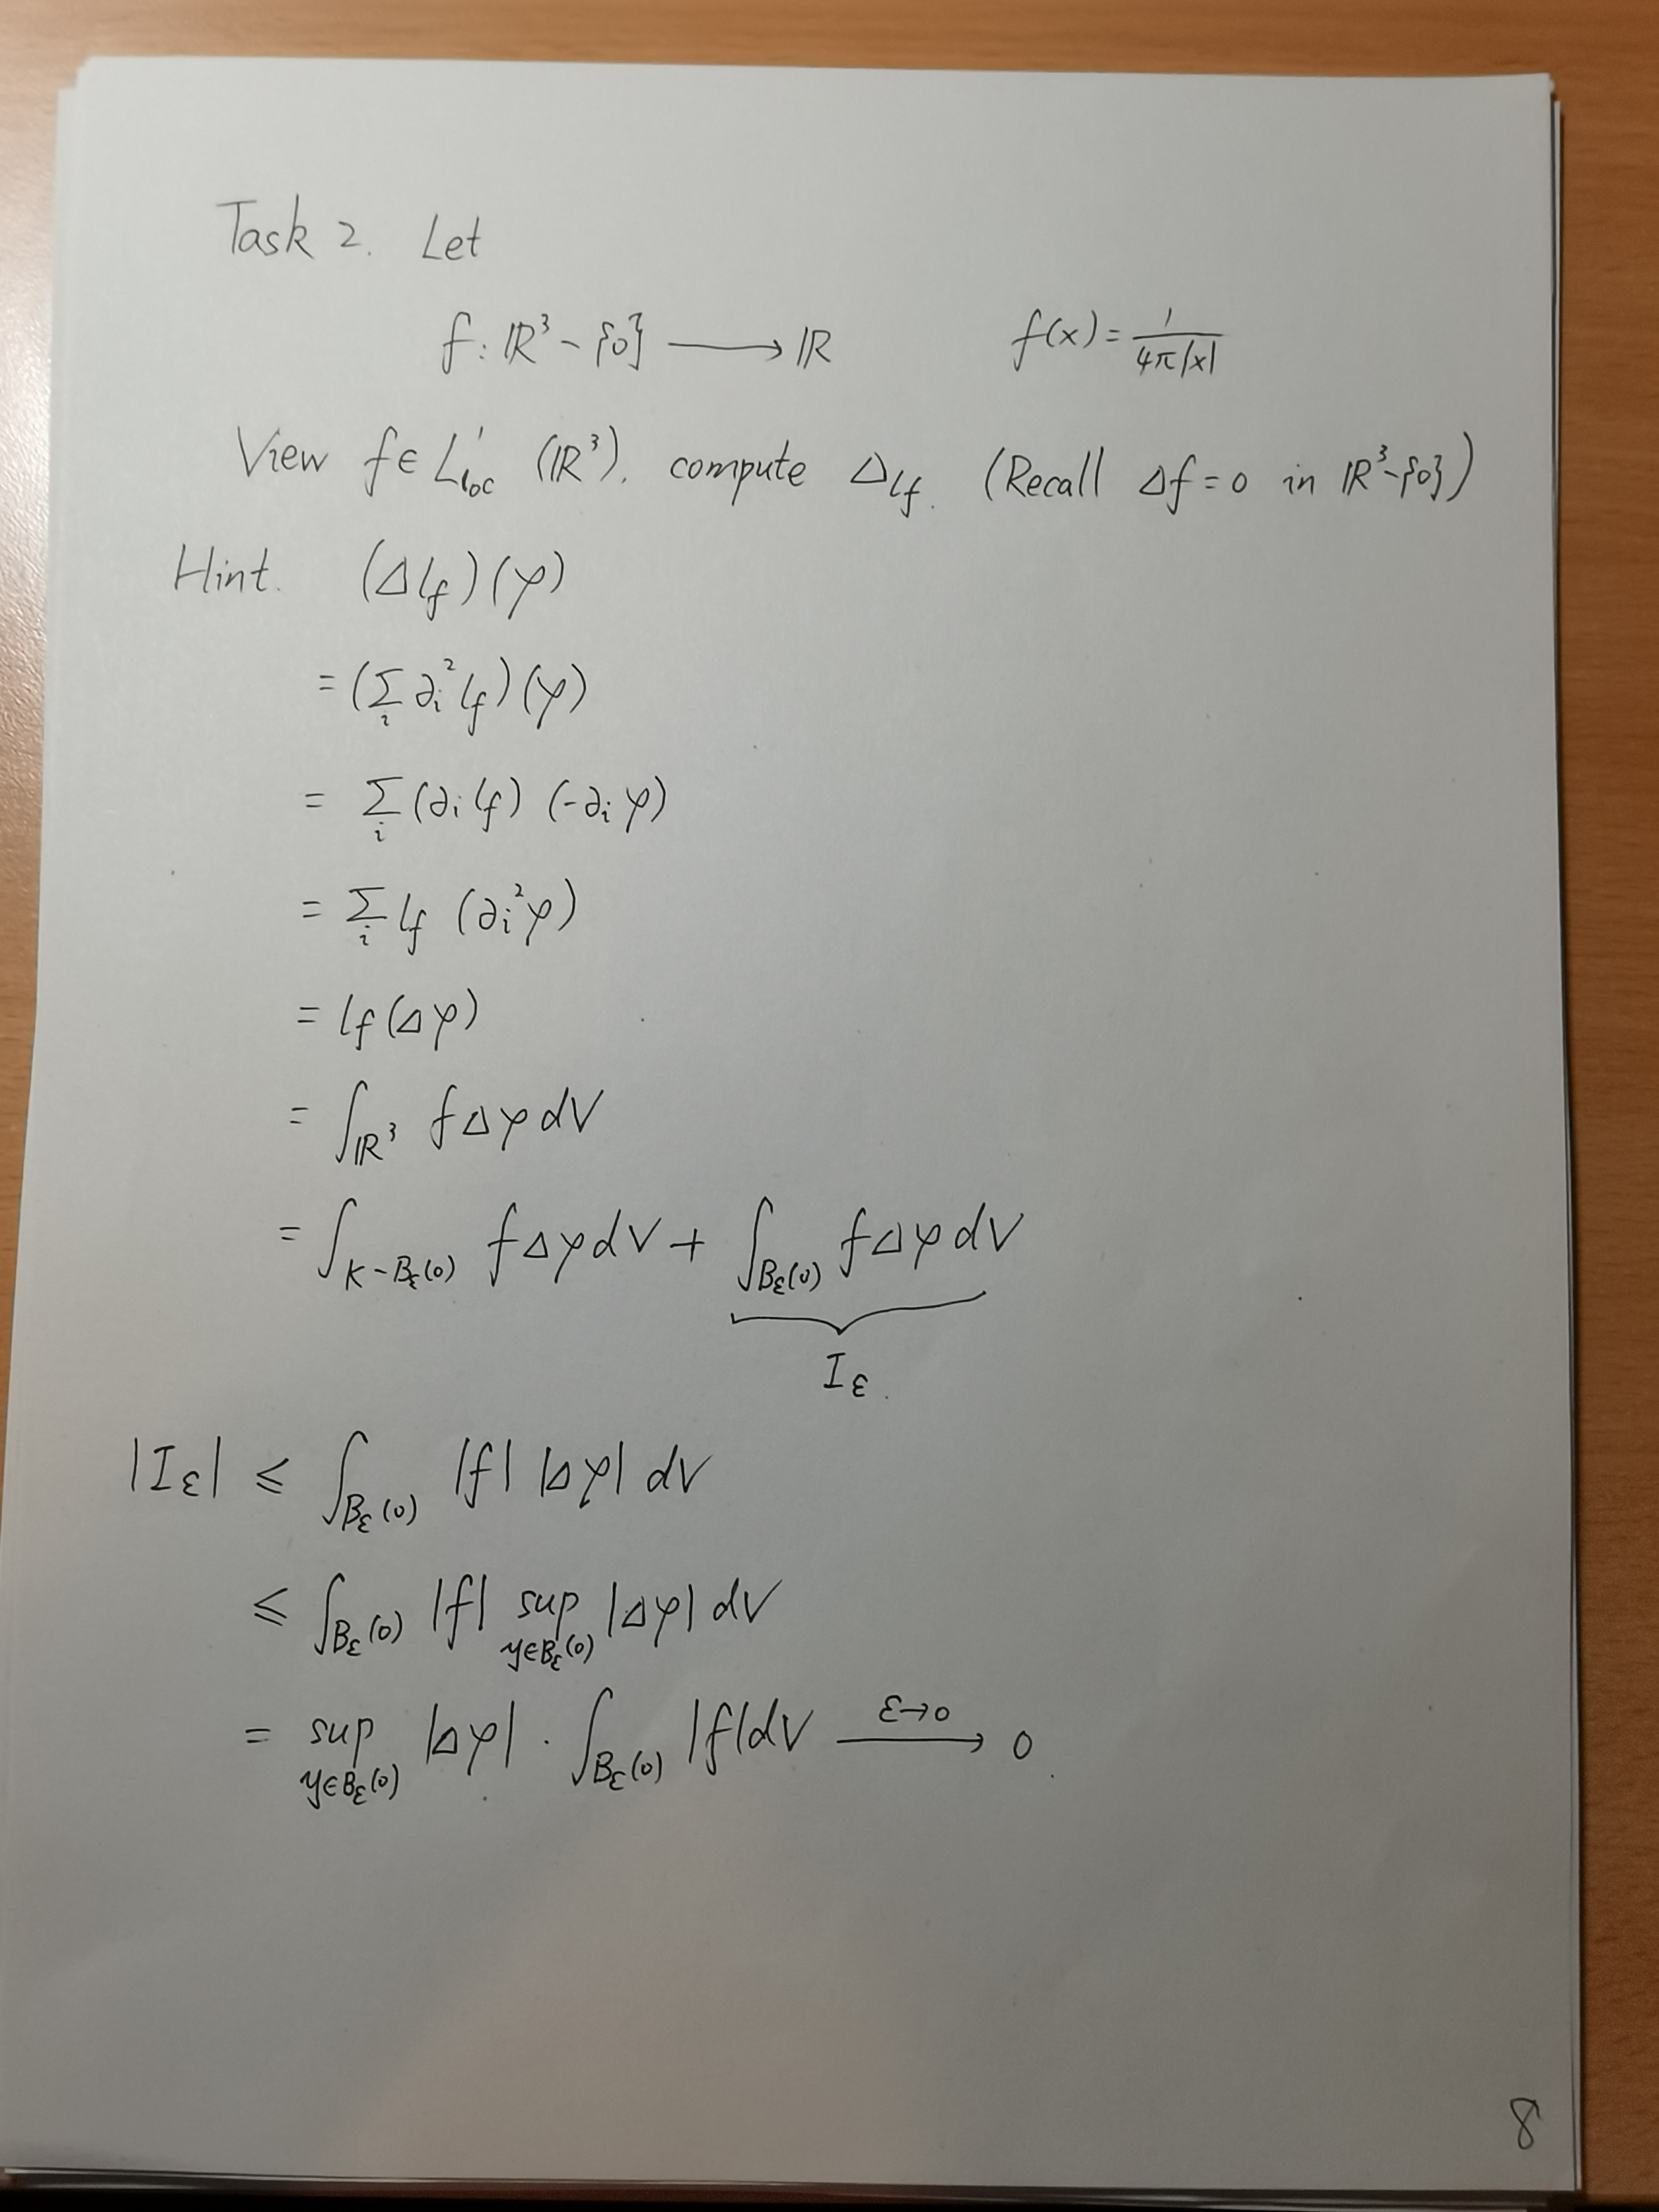 Task 2. Let
f: ℝ³ - {0} ⟶ ℝ    f(x) = 1/(4π|x|)
View f ∈ L¹_loc (ℝ³), compute Δl_f. (Recall Δf = 0 in ℝ³-{0})
Hint. (Δl_f)(φ)
= (∑_i ∂_i² l_f)(φ)
= ∑_i (∂_i l_f) (-∂_i φ)
= ∑_i l_f (∂_i² φ)
= l_f (Δφ)
= ∫_{ℝ³} f Δφ dV
= ∫_{K - B_ε(0)} f Δφ dV + ∫_{B_ε(0)} f Δφ dV
I_ε.
|I_ε| ≤ ∫_{B_ε(0)} |f| |Δφ| dV
≤ ∫_{B_ε(0)} |f| sup_{y∈B_ε(0)} |Δφ| dV
= sup_{y∈B_ε(0)} |Δφ| · ∫_{B_ε(0)} |f| dV ⟶^{ε→0} 0.
8